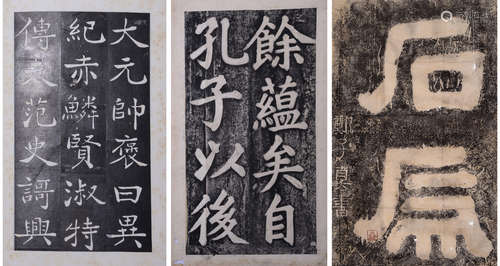 大元帥褒曰異
紀赤鱗賢淑特
傳袁范史謌興
餘蘊矣自
孔子以後
石虎
鄭子真書